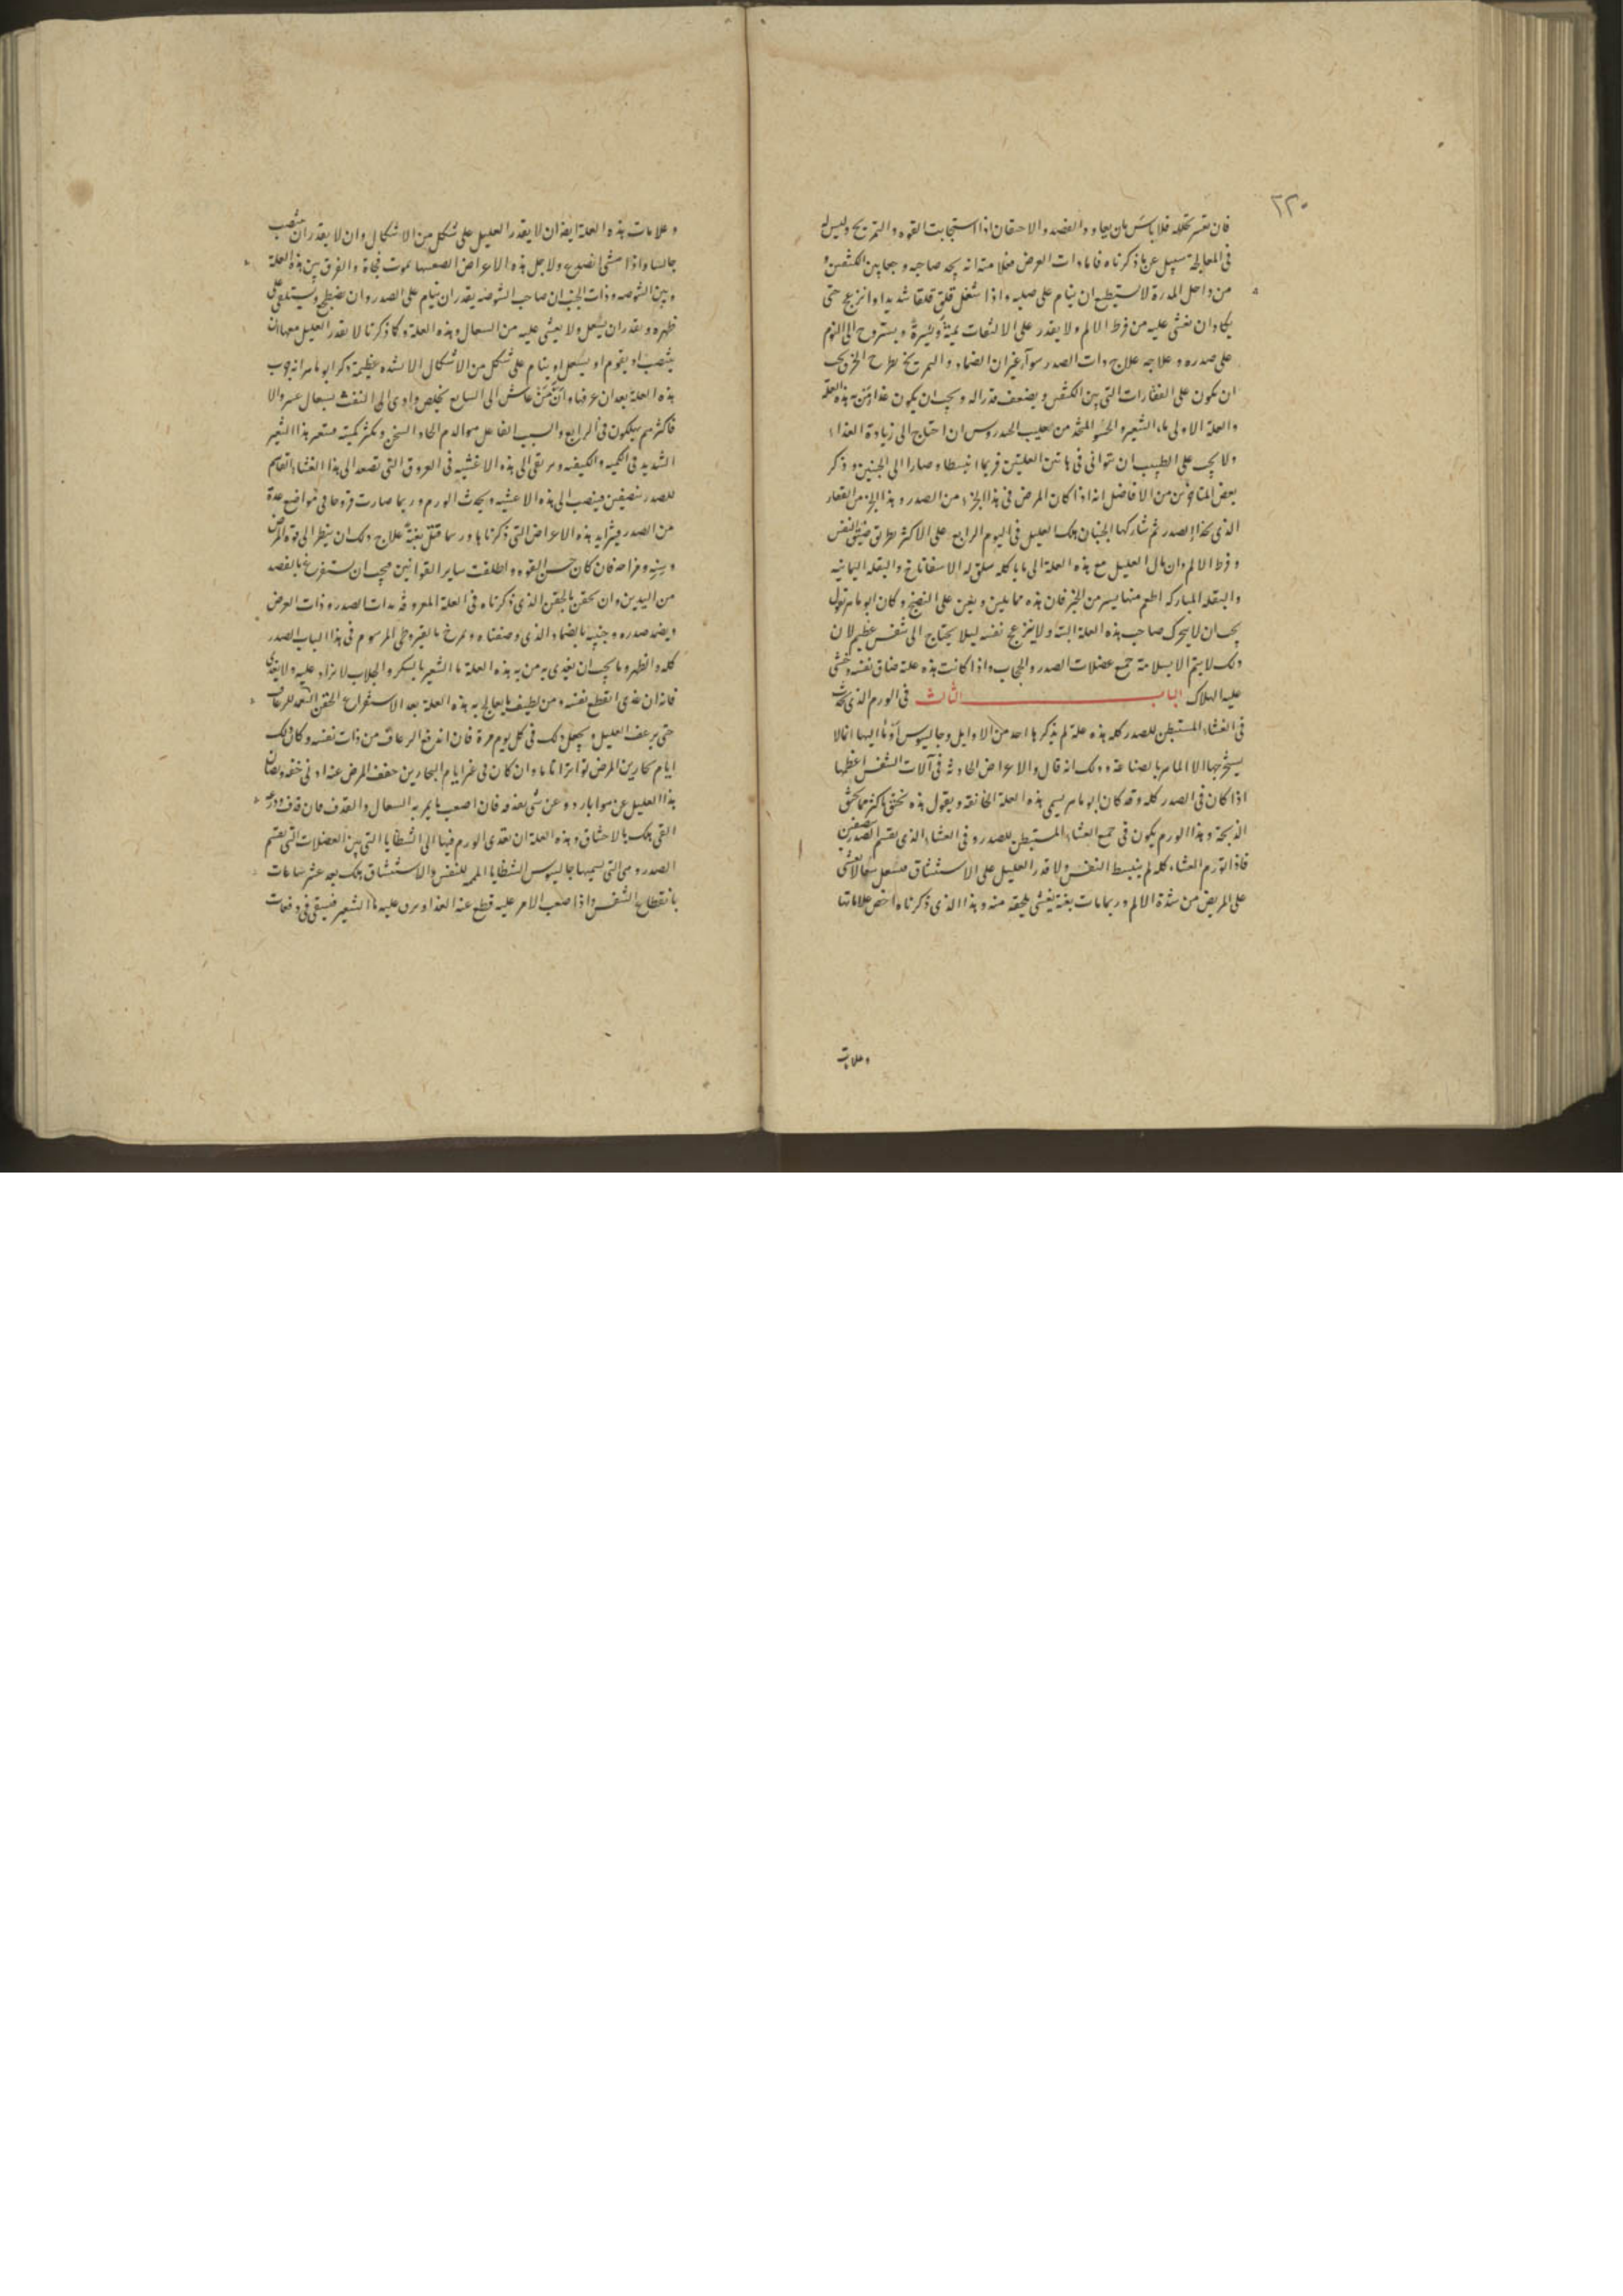 ٢٢٠
فان تعسر تحلله فلا باس بان يعاود والفصد والاحتقان اذا استجابت القوه والتمريخ وليس له
فى المعالجة سبيل غير ما ذكرناه فاما ذات العرض فعلامته انه يجد صاحبه وجعا بين الكتفين و
من داخل المدرة لا يستطيع ان ينام على صلبه واذا سعل قلق قلقا شديدا وانزعج حتى
يكاد ان يغشى عليه من فرط الالم ولا يقدر على الالتفات يمينة ويسرة ويستروح الى النوم
على صدره وعلاجه علاج ذات الصدر سوآ غير ان الضماد والتمريخ يطرح الخرق يجب
ان تكون على الفقارات التى بين الكتفين ويضعف قدر اله ويجب ان يكون غذا من به هذه العلة
والعلة الاولى ماء الشعير والحسو المتخذ من لعليب الحندروس ان احتاج الى زيادة الغذاء
ولا يجب على الطبيب ان يتوانى فى هاتين العلتين فربما انبسطا وصارا الى الجنبين وذكر
بعض المتاخرين من الافاضل انه اذا كان المرض فى هذا الجزء من الصدر وهذا الجزء من الفقار
الذى بحذا الصدر ثم شاركها الجنبان هلك العليل فى اليوم الرابع على الاكثر بطريق ضيق النفس
وفرط الالم وان مال العليل مع هذه العلة الى ما ياكله سلق له الاسفاناخ والبقلة اليمانيه
والبقله المباركه اطعم منها يسير من الخبز فان هذه مما يلين ويعين على النضج وكان ابو ماهر يقول
يجب ان لا يتحرك صاحب هذه العلة البتة ولا ينزعج نفسه ليلا يحتاج الى تنفس عظيم لان
ذلك لا يتم الا بسلامة جميع عضلات الصدر والحجاب واذا كانت هذه علة ضاق نفسه وخشى
عليه الهلاك الباب الثالث فى الورم الذى يحدث
فى الغشاء المستبطن للصدر كله هذه علة لم يذكرها احد من الاوايل وجالينوس اوما اليها انما لا
يستخرجها الا الماهر بالصناعة وذلك انه قال والاعراض الحادثة فى آلات التنفس اعظمها
اذا كان فى الصدر كله وقد كان ابو ماهر يسمى هذه العلة الخانقة ويقول هذه تخنق اكثر مما تخنق
الذبحة وهذا الورم يكون فى جميع الغشاء المستبطن للصدر وفى الغشاء الذى يقسم الصدر بنصفين
فاذا تورم الغشاء كله لم ينبسط النفس ولا قدر العليل على الاستنشاق فيسعل سعالا يغشى
على المريض من شدة الالم وربما مات بغتة بغشى يلحقه منه وهذا الذى ذكرناه اخص علاماتها
وعلامات
وعلامات هذه العلة ايضا ان لا يقدر العليل على شكل من الاشكال وان لا يقدر ان ينتصب
جالسا واذا مشى انصدع ولاجل هذه الاعراض الصعبها يموت فجاة والفرق بين هذه العلة
وبين الشوصه وذات الجنب ان صاحب الشوصه يقدر ان ينام على الصدر وان يضطجع ويستلقى على
ظهره ويقدر ان يسعل ولا يغشى عليه من السعال وهذه العلة وكما ذكرنا لا يقدر العليل معها ان
ينتصب او يقوم او يسعل او ينام على شكل من الاشكال الا بشده عظيمة ذكر ابو ماهر انه جرب
هذه العلة بعد ان عرفها وان من عاش الى السابع تخلص وادى الى النفث بسعال عسر والا
فاكثرهم يهلكون فى الرابع والسبب الفاعل هو الدم الحاد السخن وتكثر كميته فيتغير هذا التغير
الشديد فى الكميه والكيفيه ويرتقى الى هذه الاغشيه فى العروق التى تصعد الى هذا الغشاء القاسم
للصدر بنصفين فينصب الى هذه الاغشيه ويحدث الورم وربما صارت قروحا فى مواضع عدة
من الصدر فيتزايد هذه الاعراض التى ذكرناها وربما قتل بغتة علاج ذلك ان ينظر الى قوة المريض
وسنه ومزاجه فان كان حسن القوه واطلقت ساير القوانين فيجب ان يستفرغ بالفصد
من اليدين وان يحقن بالحقن الذى ذكرناه فى العلة المعروفة بذات الصدر وذات العرض
ويضمد صدره وجنبيه بالضماد الذى وصفناه ويمرخ بالقيروطى المرسوم فى هذا الباب الصدر
كله والظهر ومما يجب ان يغذى به من به هذه العلة ماء الشعير بالسكر والجلاب لا يزاد عليه ولا يغذى
فانه ان غذى انقطع نفسه ومن لطيف ما يعالج به هذه العلة بعد الاستفراغ بالحقن التعمد للرعاف
حتى يرعف العليل ويجعل ذلك فى كل يوم مرة فان اندفع الرعاف من ذات نفسه وكان ذلك
ايام بحارين المرض تواترا تاما وان كان فى غير ايام البحارين خفف المرض عنه ادنى خفه ويصان
هذا العليل عن هوا بارد وعن شى يعذفه فان اصعب ما يمر به السعال والقذف فان قذف وذرعه
القى هلك بالاختناق وهذه العلة ان تعدى الورم فيها الى الشظايا التى بين العضلات التى تقسم
الصدر وهى التى يسميها جالينوس الشظايا المهمه للتنفس والاستنشاق هلك بعد عشر ساعات
بانقطاع التنفس واذا صعب الامر عليه قطع عنه الغذا ويبرد عليه ماء الشعير فيسقى فى دفعات